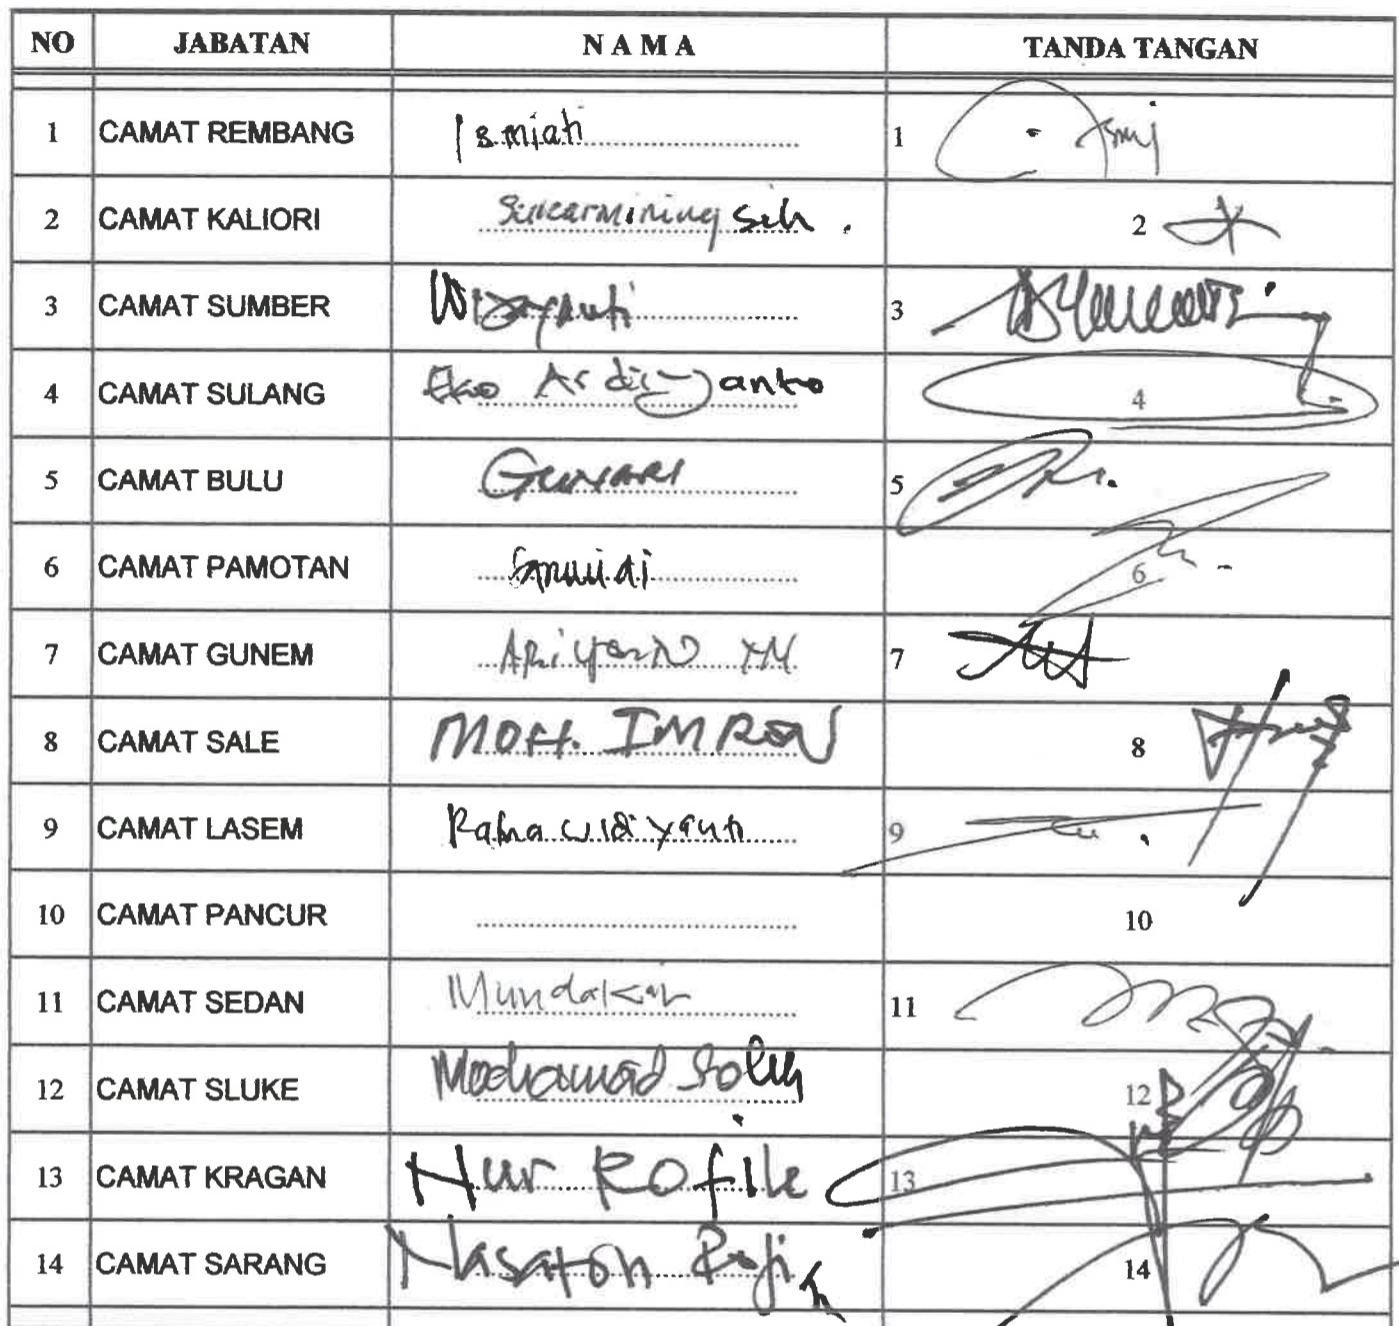 NO JABATAN N A M A TANDA TANGAN
1 CAMAT REMBANG Ismiati 1
2 CAMAT KALIORI sih. 2
3 CAMAT SUMBER Wijayanti 3
4 CAMAT SULANG Eko Ardiyanto 4
5 CAMAT BULU Gunari 5
6 CAMAT PAMOTAN 6
7 CAMAT GUNEM Ariyanto 7
8 CAMAT SALE MOH. IMRON 8
9 CAMAT LASEM widiyanti 9
10 CAMAT PANCUR 10
11 CAMAT SEDAN Mundakir 11
12 CAMAT SLUKE Mochamad Solih 12
13 CAMAT KRAGAN Nur Rofik 13
14 CAMAT SARANG Roji 14